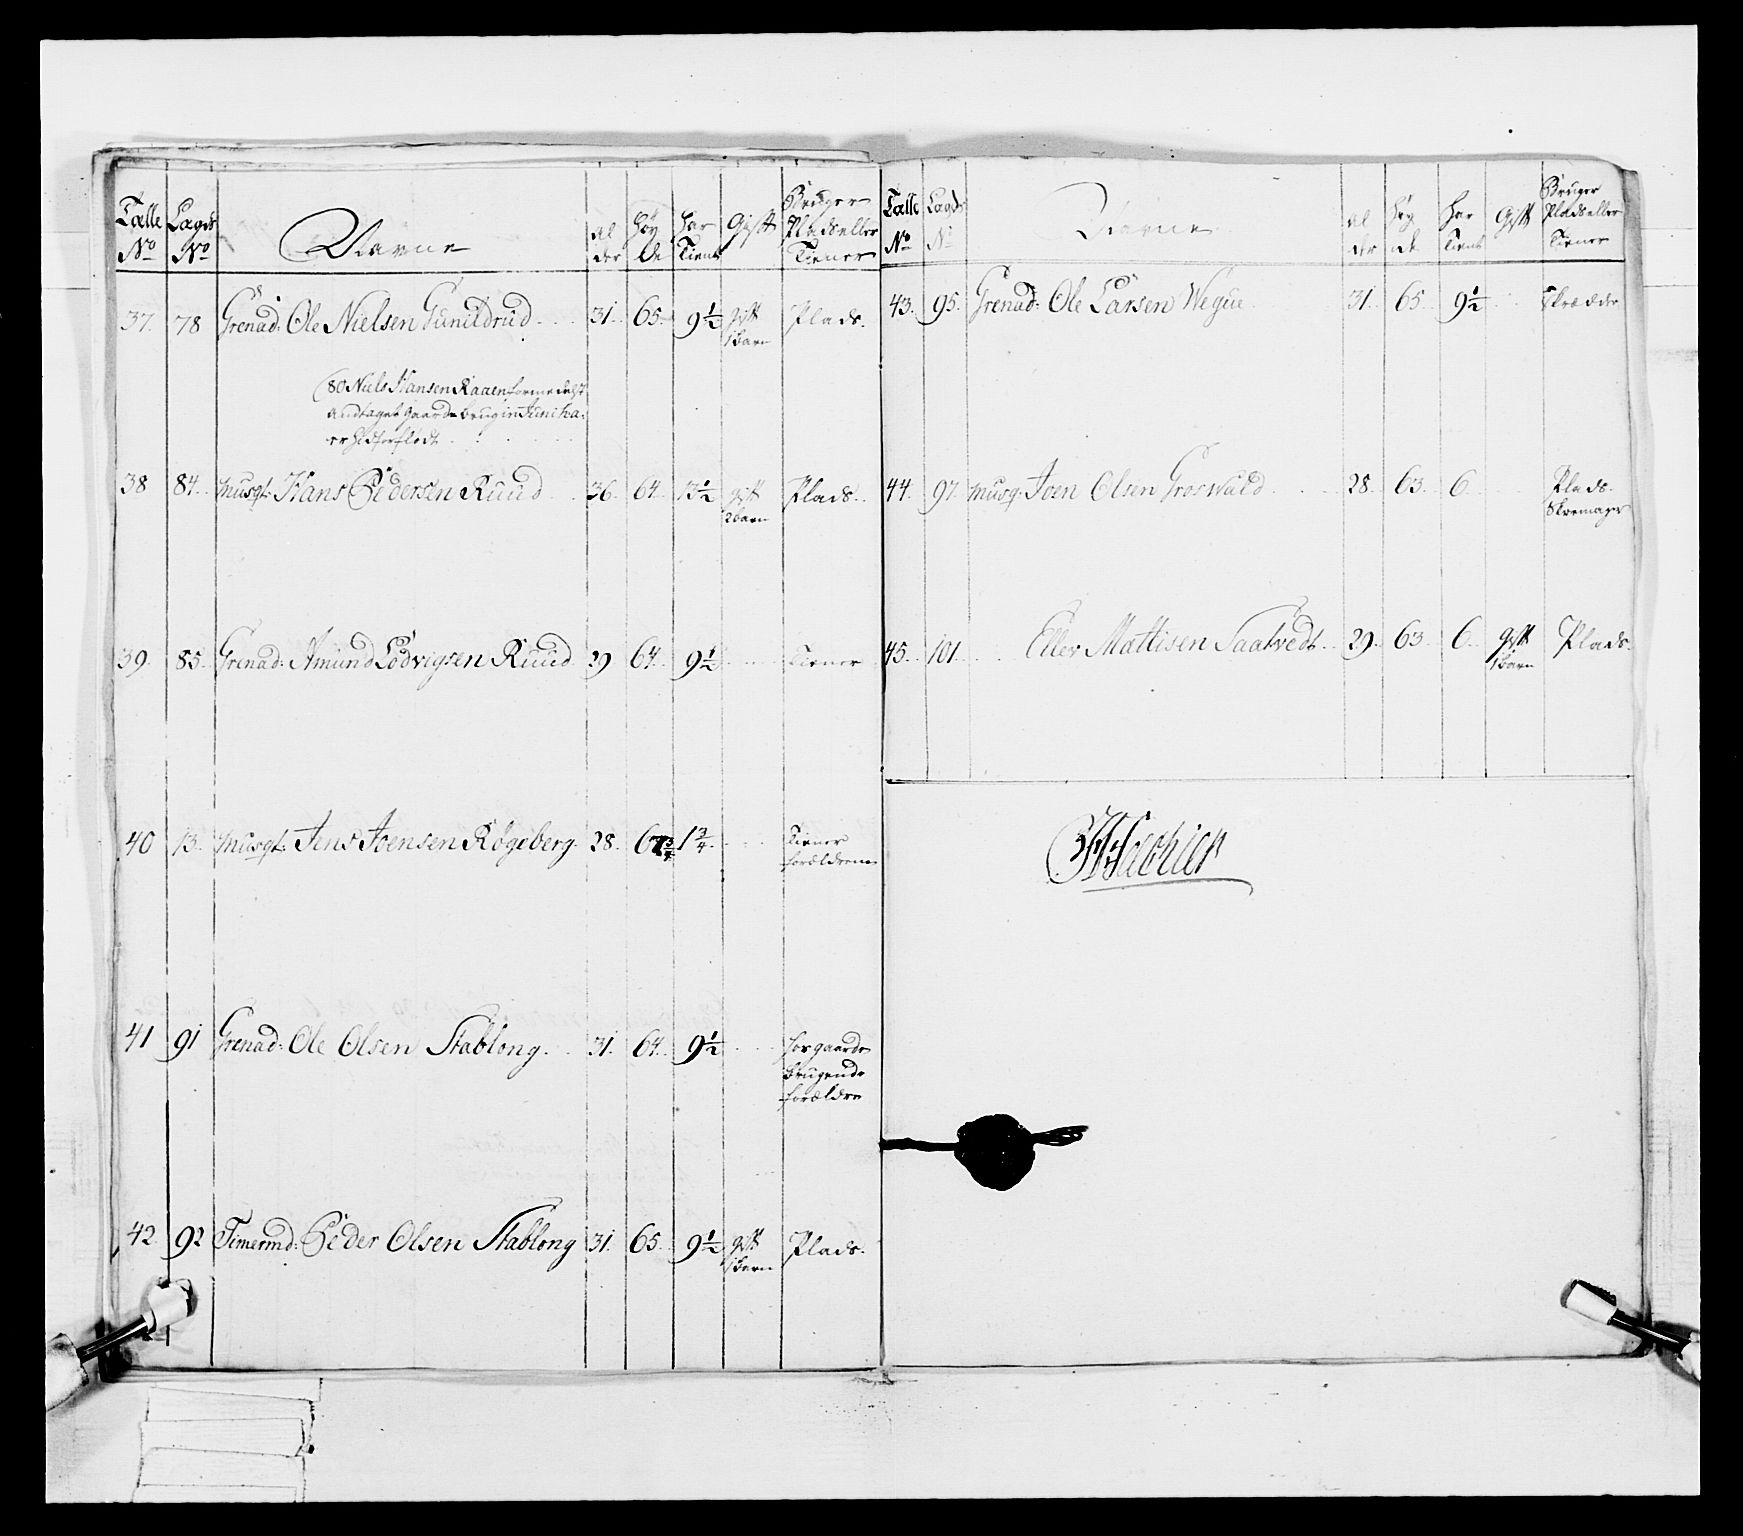 Tælle No | Lægds No | Navne | al der | Høy de | har Tient | Gift | Bruger Plads eller Tiener
37. | 78 | Grenad: Ole Nielsen Gunildrud | 31. | 65. | 9½ | gift 1 barn | Plads.
(80 Niels Hansen Raaen formedelst
andtaget gaarde brug in Juni
38 | 84. | Musqt: Hans Pedersen Ruud | 36. | 64. | 13½ | gift 2 barn | Plads.
39. | 85. | Grenad: Amund Lodvigsen Ruud | 29 | 64. | 9½ | Tiener
40 | 13. | Musqt: Jens Joensen Rögeberg. | 28. | 1¾ | Tiener forældrene
41 | 91 | Grenad: Ole Olsen Stablong. | 31. | 64. | 9½ | hos gaarde brugende forældre
42. | 92 | Timermd: Peder Olsen Stablong | 31. | 65. | 9½ | gift 1 barn | Plads.
Tælle No | Lægds No | Navne | al der | Høy de | har Tient | Gift | Bruger Plads eller Tiener
43. | 95. | Grenad: Ole Larsen Wegue | 31. | 65 | 9½ | Skrædder
44. | 97. | Musq: Joen Olsen Groswald | 28. | 63. | 6. | Plads. Skoemager
45. | 101. | Ellev Mattisen Saatvedt. | 29. | 63. | 6. | gift 1 barn | Plads.